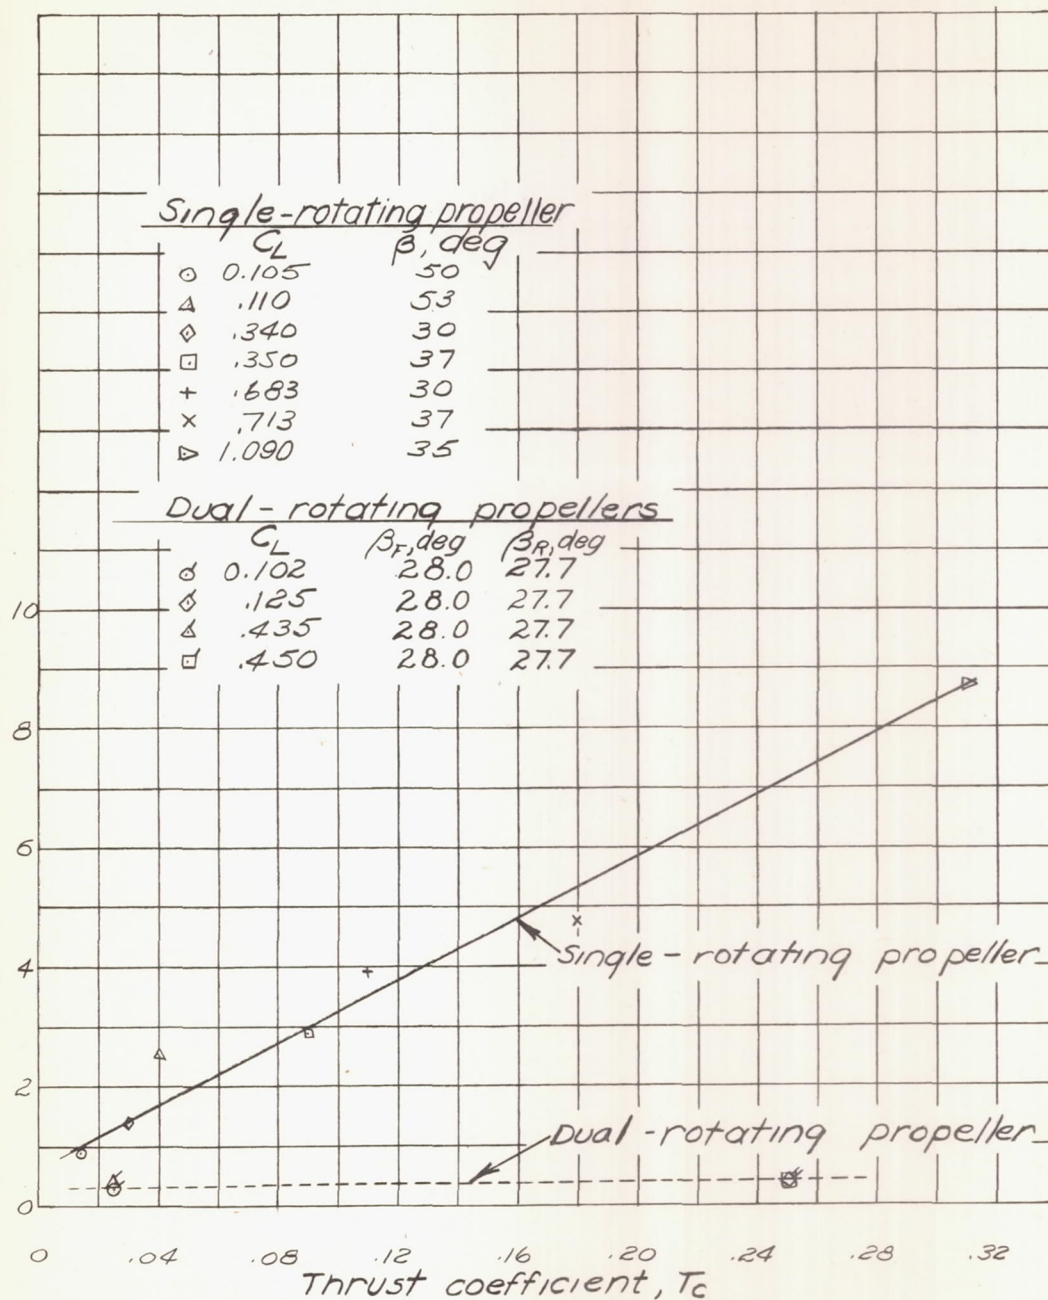 Single-rotating propeller
C_L β, deg
0.105 50
.110 53
.340 30
.350 37
.683 30
.713 37
1.090 35
Dual-rotating propellers
C_L β_F, deg β_R, deg
0.102 28.0 27.7
.125 28.0 27.7
.435 28.0 27.7
.450 28.0 27.7
10
8
6
4
Single-rotating propeller
2
Dual-rotating propeller
0
0 .04 .08 .12 .16 .20 .24 .28 .32
Thrust coefficient, T_c